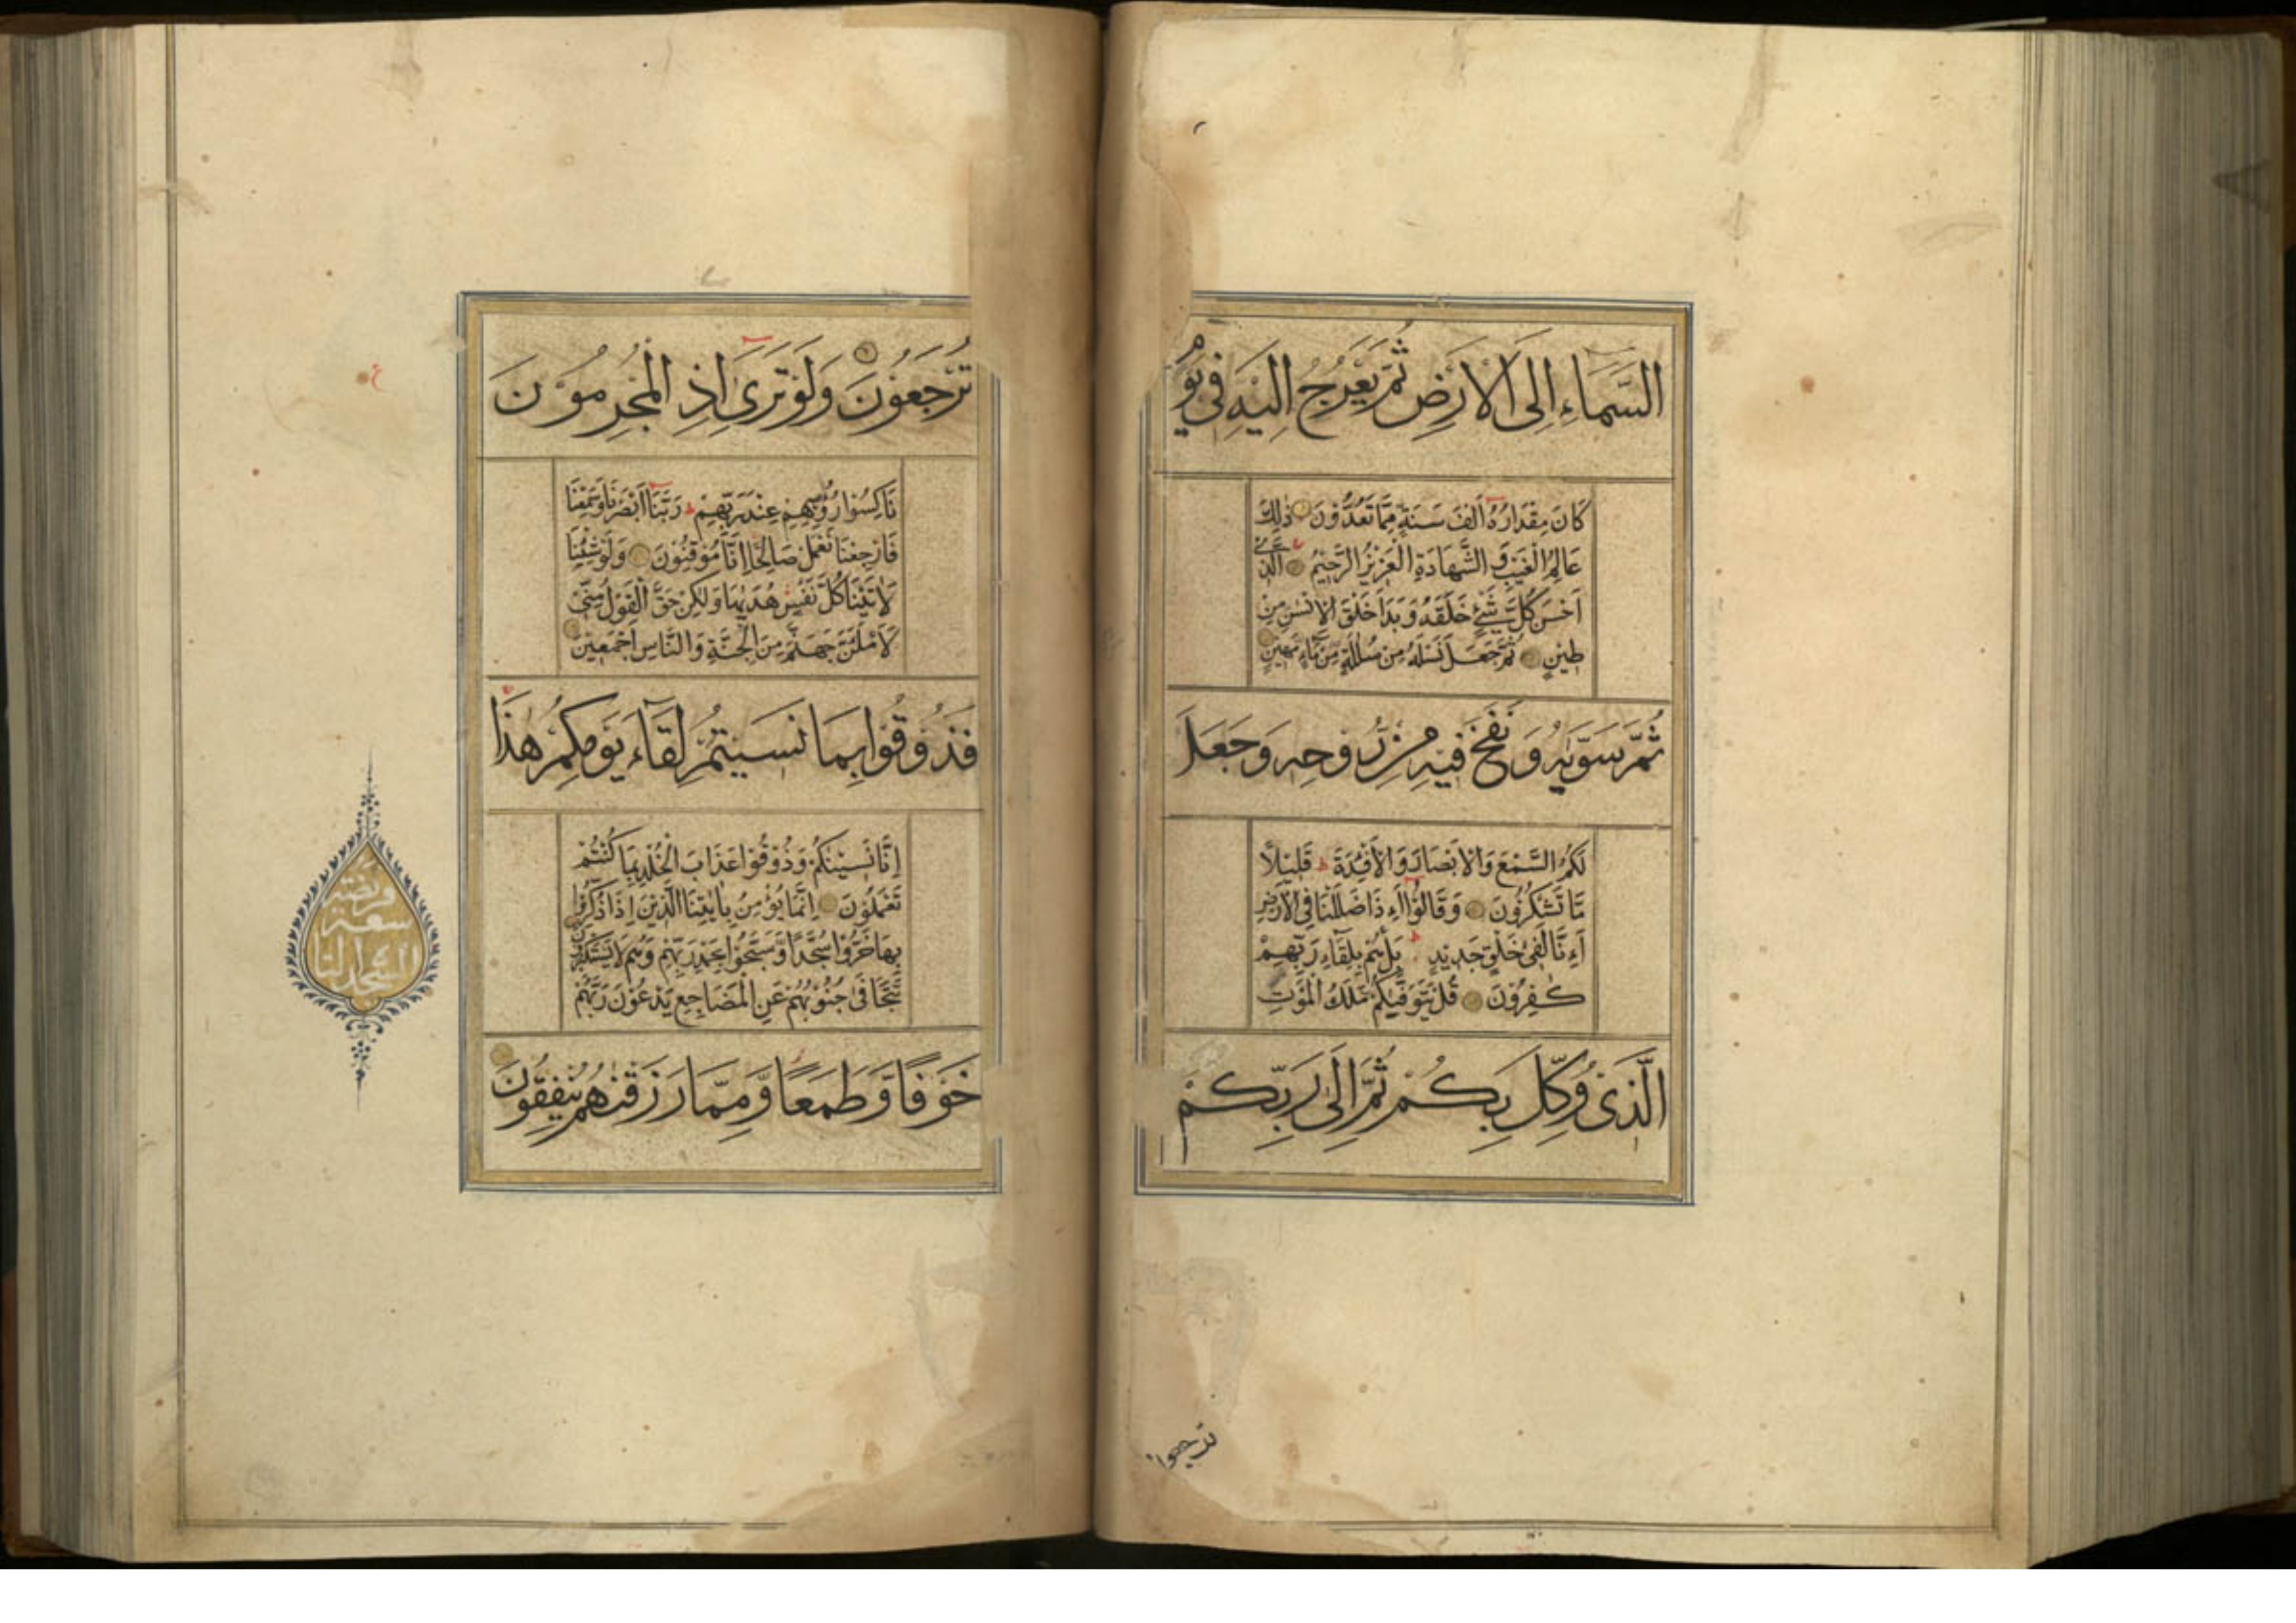 السَّمَاءِ اِلَى الْاَرْضِ ثُمَّ يَعْرُجُ اِلَيْهِ فِى يَوْمٍ
كَانَ مِقْدَارُهُ اَلْفَ سَنَةٍ مِمَّا تَعُدُّوْنَ ذٰلِكَ
عَالِمُ الْغَيْبِ وَ الشَّهَادَةِ الْعَزِيْزُ الرَّحِيْمُ الَّذِىْ
اَحْسَنَ كُلَّ شَىْءٍ خَلَقَهُ وَ بَدَاَ خَلْقَ الْاِنْسٰنِ مِنْ
طِيْنٍ ثُمَّ جَعَلَ نَسْلَهُ مِنْ سُلٰلَةٍ مِنْ مَّاءٍ مَهِيْنٍ
ثُمَّ سَوّٰيهُ وَ نَفَخَ فِيْهِ مِنْ رُوْحِهِ وَجَعَلَ
لَكُمُ السَّمْعَ وَالْاَبْصَارَ وَالْاَفْئِدَةَ قَلِيْلًا
مَّا تَشْكُرُوْنَ وَ قَالُوْا اَءِذَا ضَلَلْنَا فِى الْاَرْضِ
اَءِنَّا لَفِى خَلْقٍ جَدِيْدٍ بَلْ هُمْ بِلِقَاءِ رَبِّهِمْ
كٰفِرُوْنَ قُلْ يَتَوَفّٰيكُمْ مَلَكُ الْمَوْتِ
الَّذِىْ وُكِّلَ بِكُمْ ثُمَّ اِلَى رَبِّكُمْ
تُرْجَعُوْنَ وَلَوْ تَرٰى اِذِ الْمُجْرِمُوْنَ
نَاكِسُوْا رُؤُسِهِمْ عِنْدَ رَبِّهِمْ رَبَّنَا اَبْصَرْنَا وَسَمِعْنَا
فَارْجِعْنَا نَعْمَلْ صَالِحًا اِنَّا مُوْقِنُوْنَ وَلَوْ شِئْنَا
لَاٰتَيْنَا كُلَّ نَفْسٍ هُدٰيهَا وَلٰكِنْ حَقَّ الْقَوْلُ مِنِّىْ
لَاَمْلَئَنَّ جَهَنَّمَ مِنَ الْجِنَّةِ وَالنَّاسِ اَجْمَعِيْنَ
فَذُوْقُوْا بِمَا نَسِيْتُمْ لِقَاءَ يَوْمِكُمْ هٰذَا
اِنَّا نَسِيْنٰكُمْ وَذُوْقُوْا عَذَابَ الْخُلْدِ بِمَا كُنْتُمْ
تَعْمَلُوْنَ اِنَّمَا يُؤْمِنُ بِاٰيٰتِنَا الَّذِيْنَ اِذَا ذُكِّرُوْا
بِهَا خَرُّوْا سُجَّدًا وَّسَبَّحُوْا بِحَمْدِ رَبِّهِمْ وَهُمْ لَا يَسْتَكْبِرُوْنَ
تَتَجَافٰى جُنُوْبُهُمْ عَنِ الْمَضَاجِعِ يَدْعُوْنَ رَبَّهُمْ
خَوْفًا وَّطَمَعًا وَّمِمَّا رَزَقْنٰهُمْ يُنْفِقُوْنَ
ع